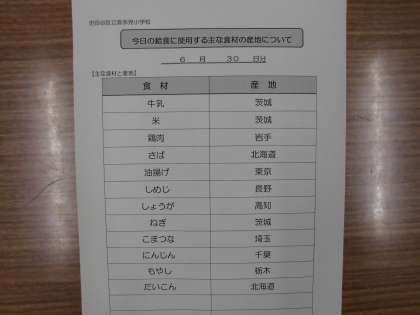 世田谷区立喜多見小学校
今日の給食に使用する主な食材の産地について
6 月 30 日分
【主な食材と産地】
食 材 産 地
牛乳 茨城
米 茨城
鶏肉 岩手
さば 北海道
油揚げ 東京
しめじ 長野
しょうが 高知
ねぎ 茨城
こまつな 埼玉
にんじん 千葉
もやし 栃木
だいこん 北海道